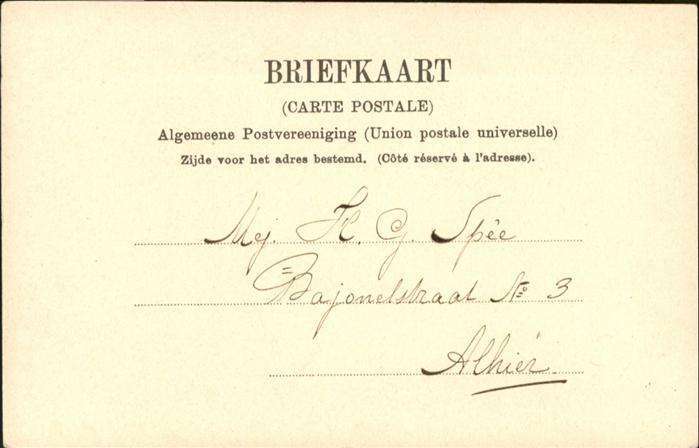 BRIEFKAART
(CARTE POSTALE)
Algemeene Postvereeniging (Union postale universelle)
Zijde voor het adres bestemd. (Côté réservé à l'adresse).
Mej. H. G. Spée
Bajonetstraat No 3
Alhier